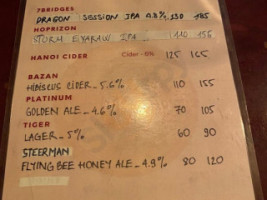 7BRIDGES
DRAGON SESSION IPA 4.3% 130 185
HOPRIZON
STORM EYARAW IPA 110 155
HANOI CIDER Cider - 6% 125 165
BAZAN
HIBISCUS CIDER - 5.6% 110 155
PLATINUM
GOLDEN ALE - 4.6% 70 105
TIGER
LAGER - 5% 60 90
STEERMAN
FLYING BEE HONEY ALE - 4.9% 80 120